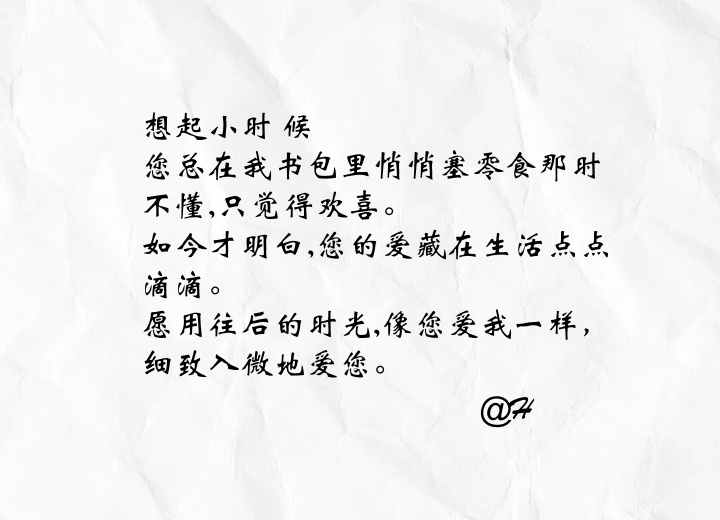 想起小时 候
您总在我书包里悄悄塞零食那时
不懂,只觉得欢喜。
如今才明白,您的爱藏在生活点点
滴滴。
愿用往后的时光,像您爱我一样，
细致入微地爱您。
@H